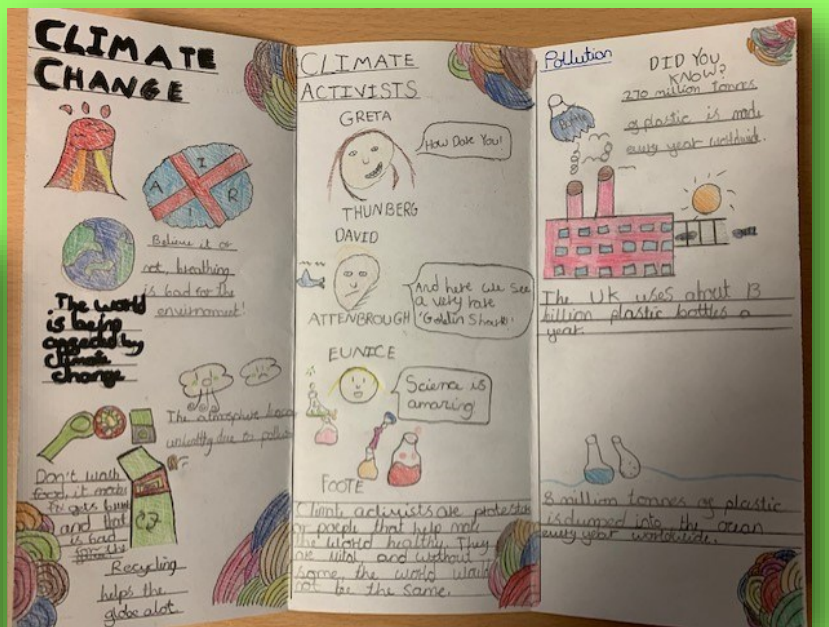 CLIMATE
CHANGE
A I R
Believe it or
not, breathing
is bad for the
environment!
The world
is being
affected by
climate
change
The atmosphere
unhealthy due to
Don't
food, it
gets
and that
is bad
for the
Recycling
helps the
globe alot.
CLIMATE
ACTIVISTS
GRETA
How Dare You!
THUNBERG
DAVID
And here we see
a very rare
'Goldin Shark'.
ATTENBROUGH
EUNICE
Science is
amazing
FOOTE
Climate activists are
or people that help make
the world healthy. They
are vital and without
some, the world would
not be the same.
Pollution
DID YOU
KNOW?
270 million tonnes
of plastic is made
every year worldwide.
The UK uses about 13
billion plastic bottles a
year.
8 million tonnes of plastic
is dumped into the ocean
every year worldwide.